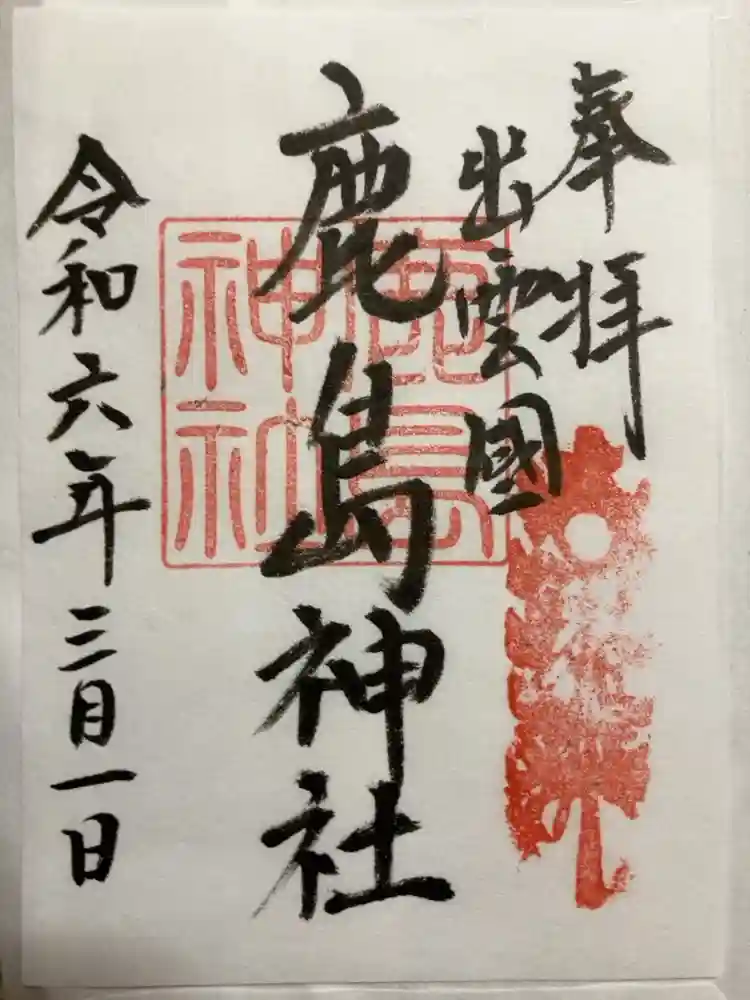 奉拝
出雲國
鹿島神社
鹿島神社
令和六年三月一日